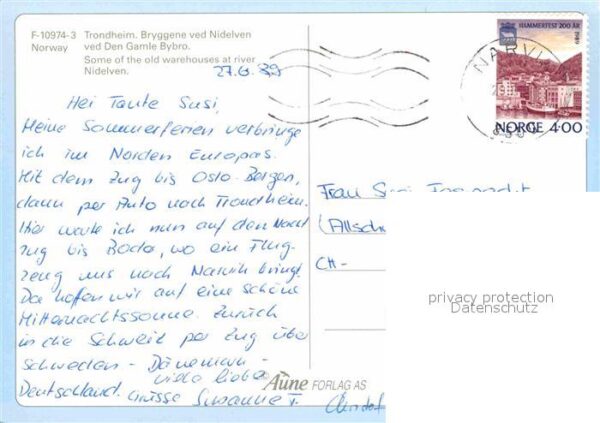 F-10974-3 Trondheim. Bryggene ved Nidelven
Norway ved Den Gamle Bybro.
Some of the old warehouses at river
Nidelven.
HAMMERFEST 200 ÅR
1989
NORGE 4.00
NARVI
27.6.89
Hei Tante Susi,
Meine Sommerferien verbringe
ich im Norden Europas.
Mit dem Zug bis Oslo-Bergen,
dann per Auto nach Trondheim.
Hier warte ich nun auf den Nacht
zug bis Bodø, wo ein Flug-
zeug uns nach Narvik bringt.
Da hoffen wir auf eine schöne
Mitternachtssonne. Zurück
in die Schweiz per Zug über
Schweden - Dänemark -
Deutschland. viele liebe
Grüsse Susanne T.
Frau Susi
(Allsch
CH-
privacy protection
Datenschutz
© Aune FORLAG AS